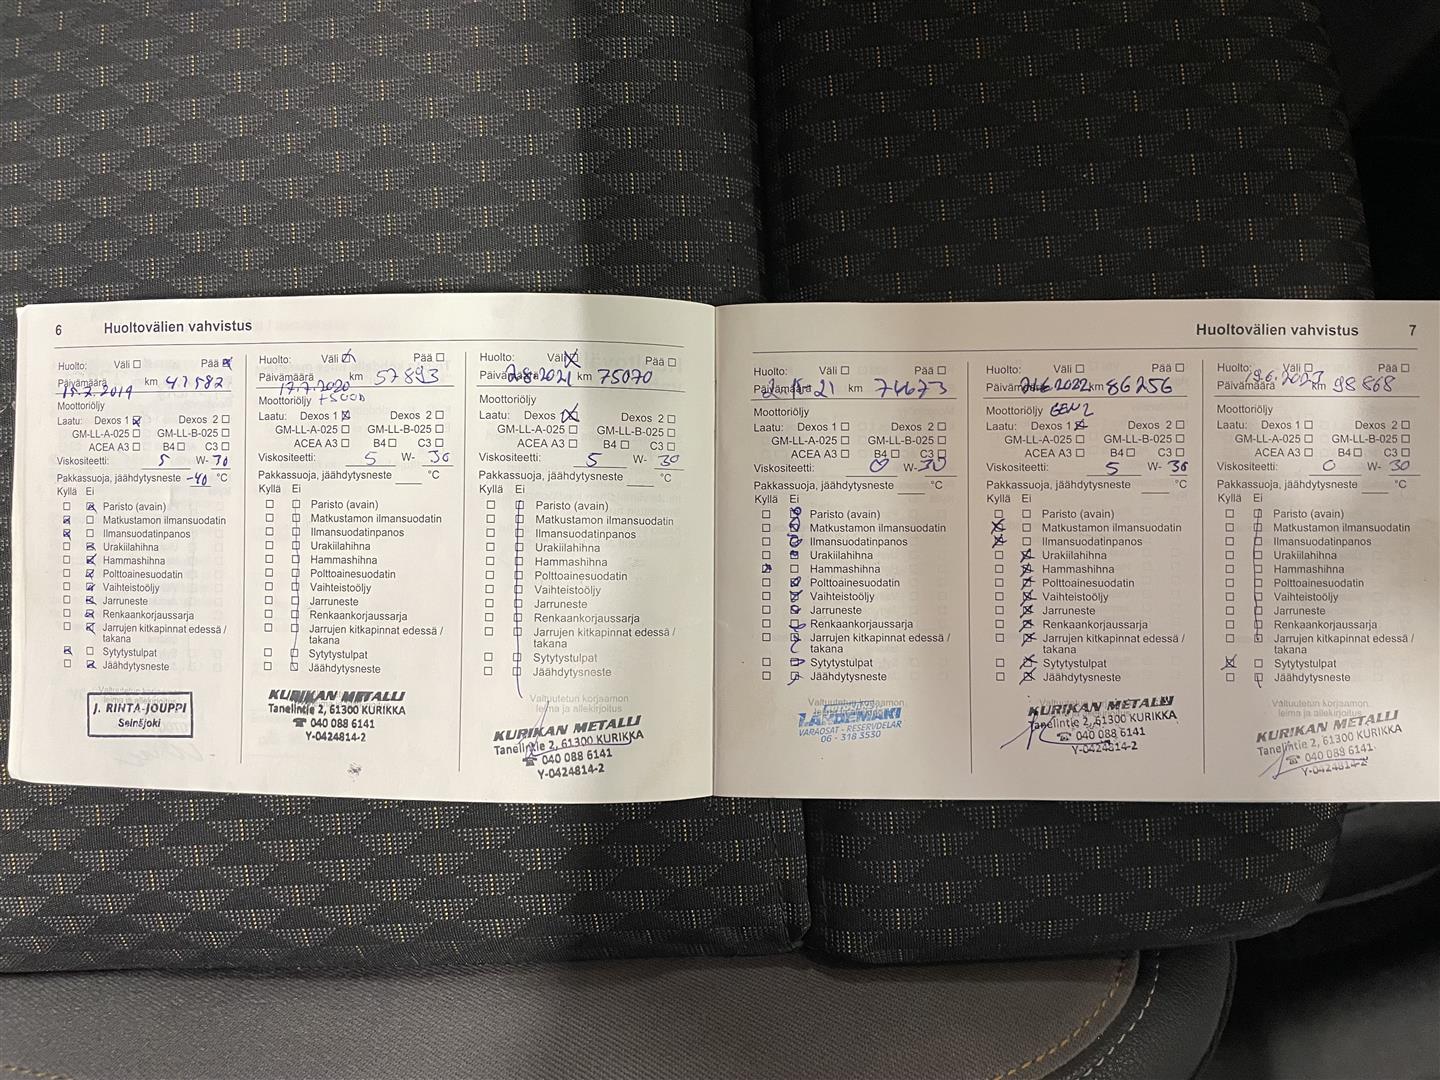 6 Huoltovälien vahvistus
Huolto: Väli Pää
Päivämäärä 15.7.2019 km 41582
Moottoriöljy
Laatu: Dexos 1 Dexos 2
GM-LL-A-025 GM-LL-B-025
ACEA A3 B4 C3
Viskositeetti: 5 W- 30
Pakkassuoja, jäähdytysneste -40 °C
Kyllä Ei
Paristo (avain)
Matkustamon ilmansuodatin
Ilmansuodatinpanos
Urakiilahihna
Hammashihna
Polttoainesuodatin
Vaihteistoöljy
Jarruneste
Renkaankorjaussarja
Jarrujen kitkapinnat edessä /
takana
Sytytystulpat
Jäähdytysneste
J. RINTA-JOUPPI
Seinäjoki
Huolto: Väli Pää
Päivämäärä 17.7.2020 km 57893
Moottoriöljy +5000
Laatu: Dexos 1 Dexos 2
GM-LL-A-025 GM-LL-B-025
ACEA A3 B4 C3
Viskositeetti: 5 W- 30
Pakkassuoja, jäähdytysneste °C
Kyllä Ei
Paristo (avain)
Matkustamon ilmansuodatin
Ilmansuodatinpanos
Urakiilahihna
Hammashihna
Polttoainesuodatin
Vaihteistoöljy
Jarruneste
Renkaankorjaussarja
Jarrujen kitkapinnat edessä /
takana
Sytytystulpat
Jäähdytysneste
KURIKAN METALLI
Tanelintie 2, 61300 KURIKKA
☎ 040 088 6141
Y-0424814-2
Huolto: Väli Pää
Päivämäärä 2.8.2021 km 75070
Moottoriöljy
Laatu: Dexos 1 Dexos 2
GM-LL-A-025 GM-LL-B-025
ACEA A3 B4 C3
Viskositeetti: 5 W- 30
Pakkassuoja, jäähdytysneste °C
Kyllä Ei
Paristo (avain)
Matkustamon ilmansuodatin
Ilmansuodatinpanos
Urakiilahihna
Hammashihna
Polttoainesuodatin
Vaihteistoöljy
Jarruneste
Renkaankorjaussarja
Jarrujen kitkapinnat edessä /
takana
Sytytystulpat
Jäähdytysneste
Valtuutetun korjaamon
leima ja allekirjoitus
KURIKAN METALLI
Tanelintie 2, 61300 KURIKKA
☎ 040 088 6141
Y-0424814-2
Huoltovälien vahvistus 7
Huolto: Väli Pää
Päivämäärä km
Moottoriöljy
Laatu: Dexos 1 Dexos 2
GM-LL-A-025 GM-LL-B-025
ACEA A3 B4 C3
Viskositeetti: 0 W- 30
Pakkassuoja, jäähdytysneste °C
Kyllä Ei
Paristo (avain)
Matkustamon ilmansuodatin
Ilmansuodatinpanos
Urakiilahihna
Hammashihna
Polttoainesuodatin
Vaihteistoöljy
Jarruneste
Renkaankorjaussarja
Jarrujen kitkapinnat edessä /
takana
Sytytystulpat
Jäähdytysneste
Valtuutetun korjaamon
leima ja allekirjoitus
VARAOSAT - RESERVDELAR
06 - 318 3530
Huolto: Väli Pää
Päivämäärä km 86256
Moottoriöljy GEN2
Laatu: Dexos 1 Dexos 2
GM-LL-A-025 GM-LL-B-025
ACEA A3 B4 C3
Viskositeetti: 5 W- 30
Pakkassuoja, jäähdytysneste °C
Kyllä Ei
Paristo (avain)
Matkustamon ilmansuodatin
Ilmansuodatinpanos
Urakiilahihna
Hammashihna
Polttoainesuodatin
Vaihteistoöljy
Jarruneste
Renkaankorjaussarja
Jarrujen kitkapinnat edessä /
takana
Sytytystulpat
Jäähdytysneste
Valtuutetun korjaamon
leima ja allekirjoitus
KURIKAN METALLI
Tanelintie 2, 61300 KURIKKA
☎ 040 088 6141
Y-0424814-2
Huolto: Väli Pää
Päivämäärä 19.6.2023 km 98868
Moottoriöljy
Laatu: Dexos 1 Dexos 2
GM-LL-A-025 GM-LL-B-025
ACEA A3 B4 C3
Viskositeetti: 0 W- 30
Pakkassuoja, jäähdytysneste °C
Kyllä Ei
Paristo (avain)
Matkustamon ilmansuodatin
Ilmansuodatinpanos
Urakiilahihna
Hammashihna
Polttoainesuodatin
Vaihteistoöljy
Jarruneste
Renkaankorjaussarja
Jarrujen kitkapinnat edessä /
takana
Sytytystulpat
Jäähdytysneste
Valtuutetun korjaamon
leima ja allekirjoitus
KURIKAN METALLI
Tanelintie 2, 61300 KURIKKA
☎ 040 088 6141
Y-0424814-2